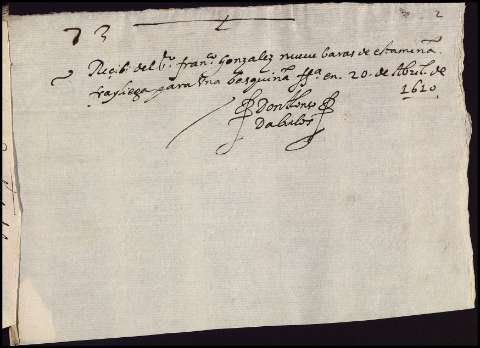 73
2
Recibi del Sr. franco. Gonzalez nueve baras de estameña
frayleza para una basquiña ffa. en. 20. de Abril. de
1610
Don Alonso
Dabalos